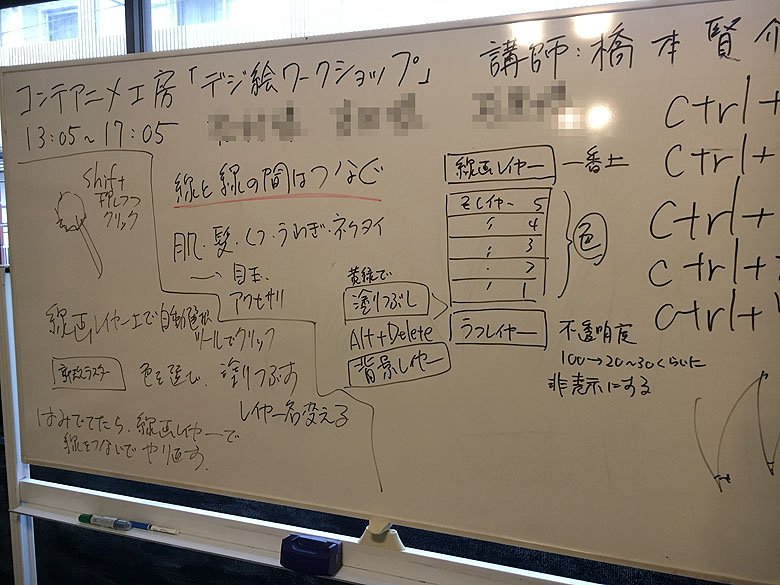 コンテアニメ工房「デジ絵ワークショップ」
講師:橋本賢介
13:05~17:05
shift+
押しつつ
クリック
線と線の間はつなぐ
肌・髪・くつ・うわぎ・ネクタイ
目玉、
アクセサリ
線画レイヤー上で自動選択
ツールでクリック
新規ラスター
色を選んで、塗りつぶす
レイヤー名変える
はみでてたら、線画レイヤーで
線をつないでやり直す。
黄緑で
塗りつぶし
Alt+Delete
背景レイヤー
線画レイヤー
一番上
色レイヤー 5
〃 4
〃 3
〃 2
〃 1
色
ラフレイヤー
不透明度
100→20~30くらいに
非表示にする
Ctrl+
Ctrl+
Ctrl+
Ctrl+
Ctrl+